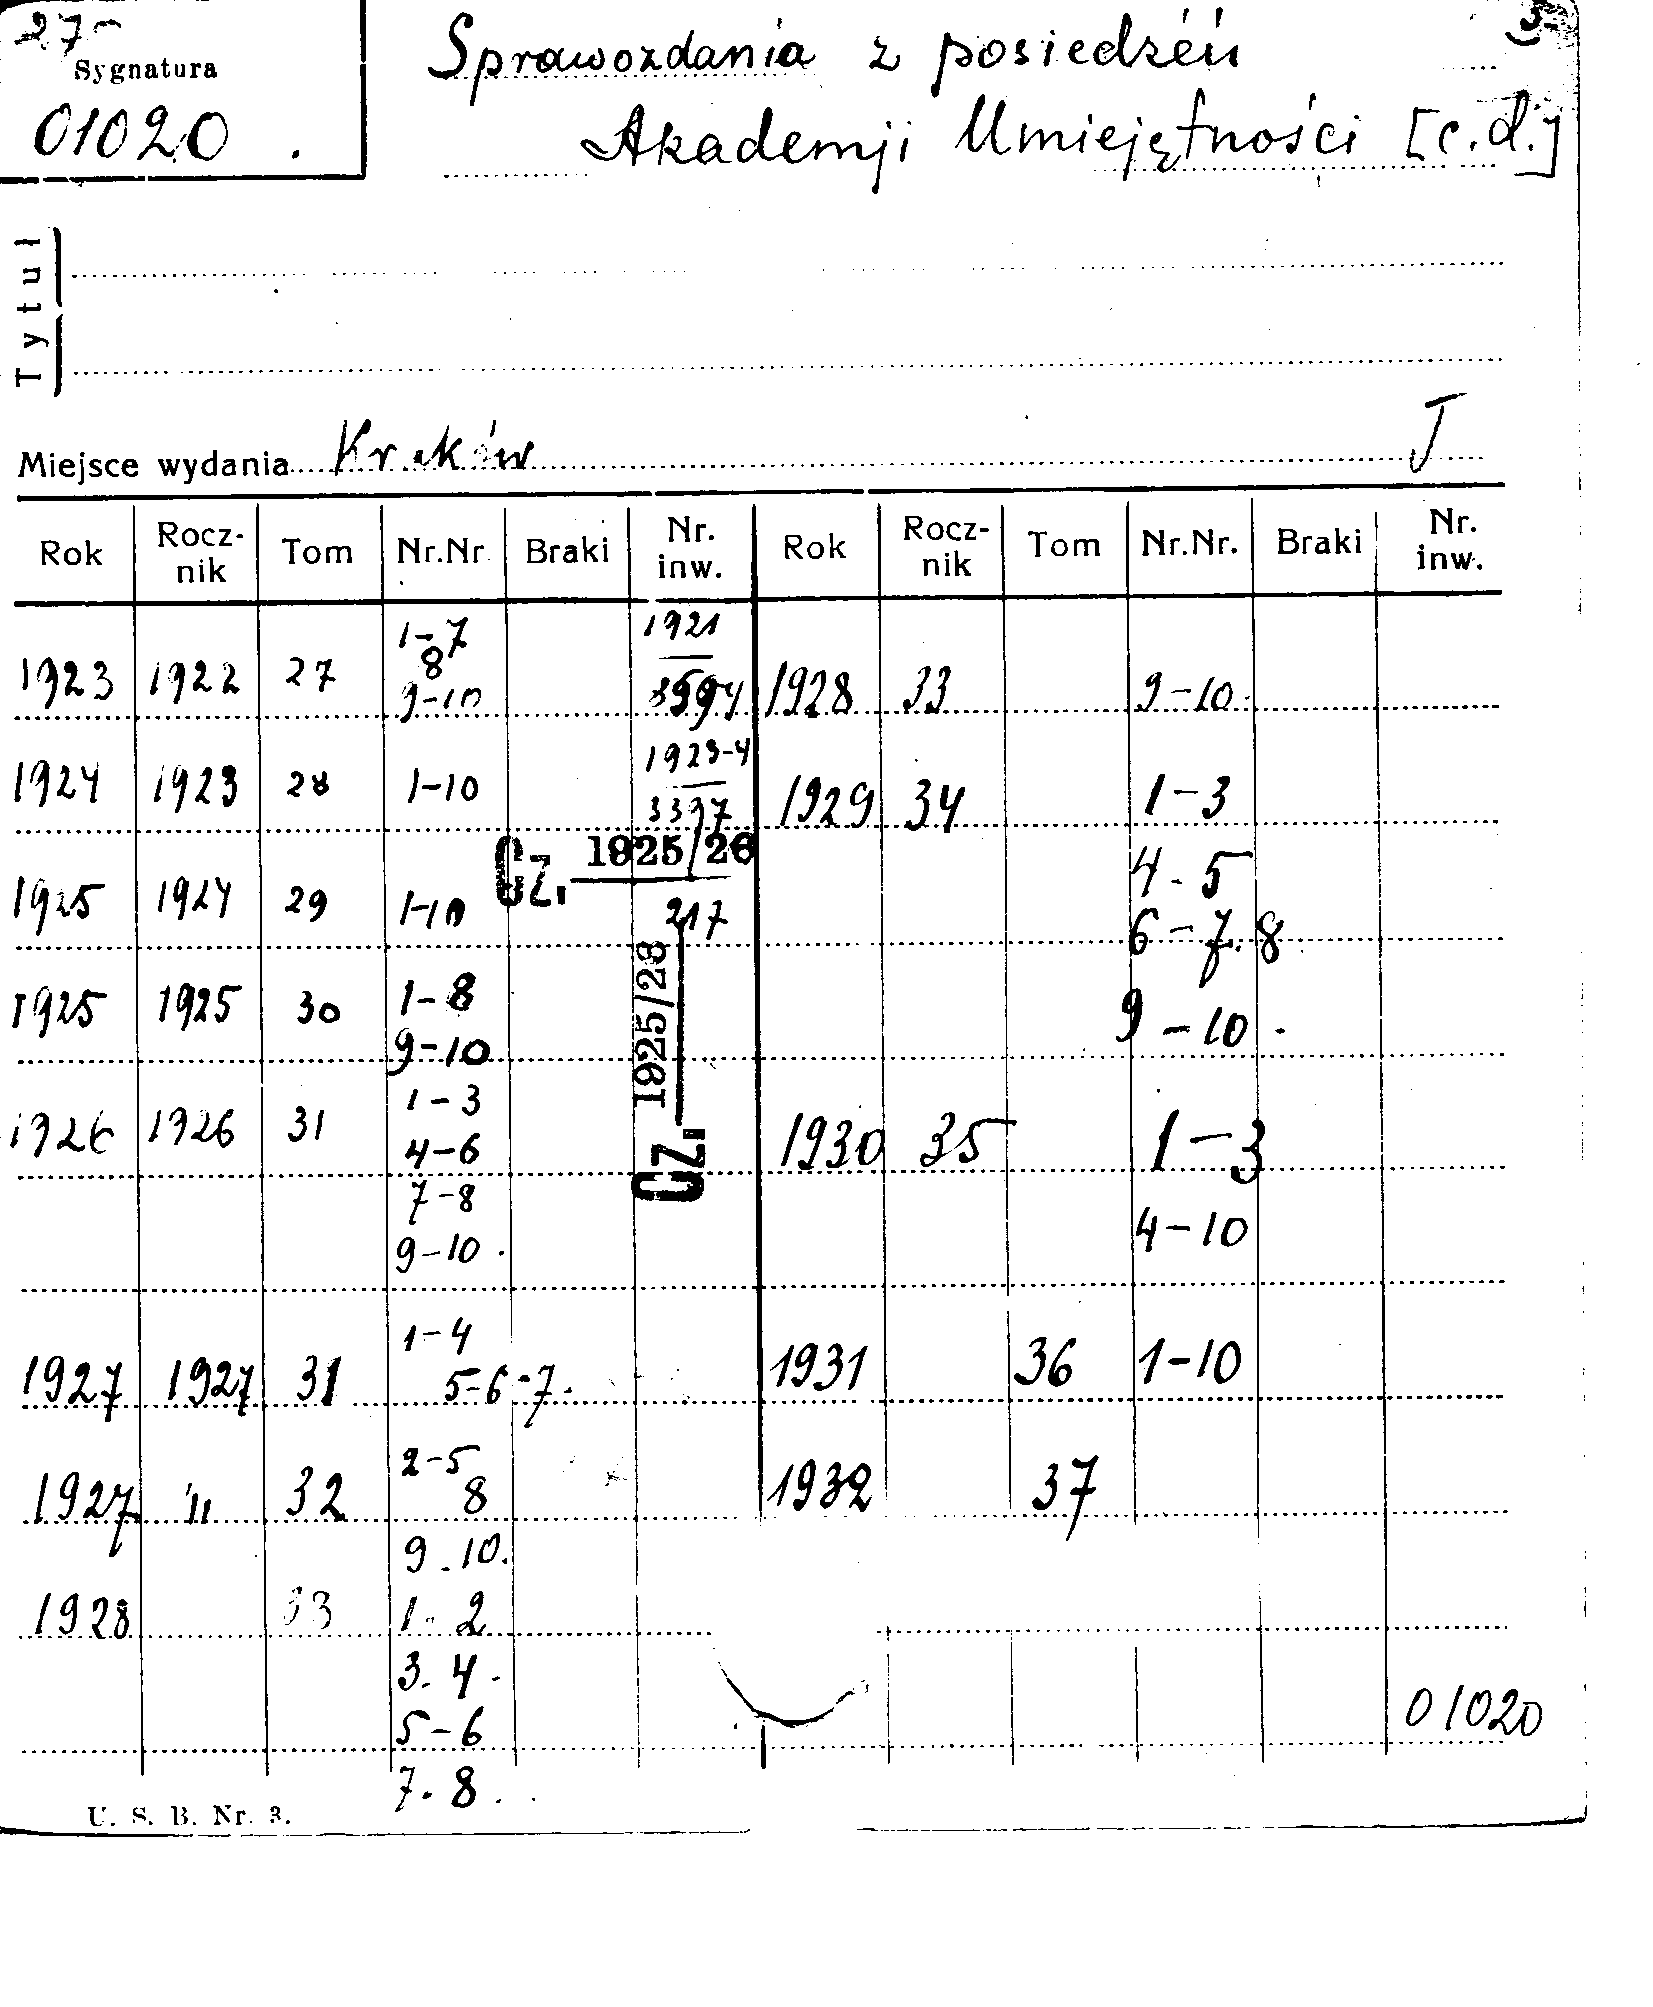 27-
Sygnatura
01020.
Sprawozdania z posiedzeń
Akademji Umiejętności [c.d.]
Tytuł
Miejsce wydania Kraków
I
Rok Rocz-nik Tom Nr.Nr. Braki Nr. inw. Rok Rocz-nik Tom Nr.Nr. Braki Nr. inw.
1923 1922 27 1-7 1921 1928 33 9-10
8
9-10
1924 1923 28 1-10 1923-4 1929 34 1-3
3397
1925 1924 29 1-10 Cz. 1925/26 4-5
217 6-7.8
1925 1925 30 1-8 Cz. 1925/26 9-10.
9-10
1926 1926 31 1-3 1930 35 1-3
4-6
7-8 4-10
9-10.
1927 1927 31 1-4 1931 36 1-10
5-6-7.
1927 " 32 2-5 1932 37
8
9.10.
1928 33 1-2
3.4.
5-6 01020
7.8.
U. S. B. Nr. 3.